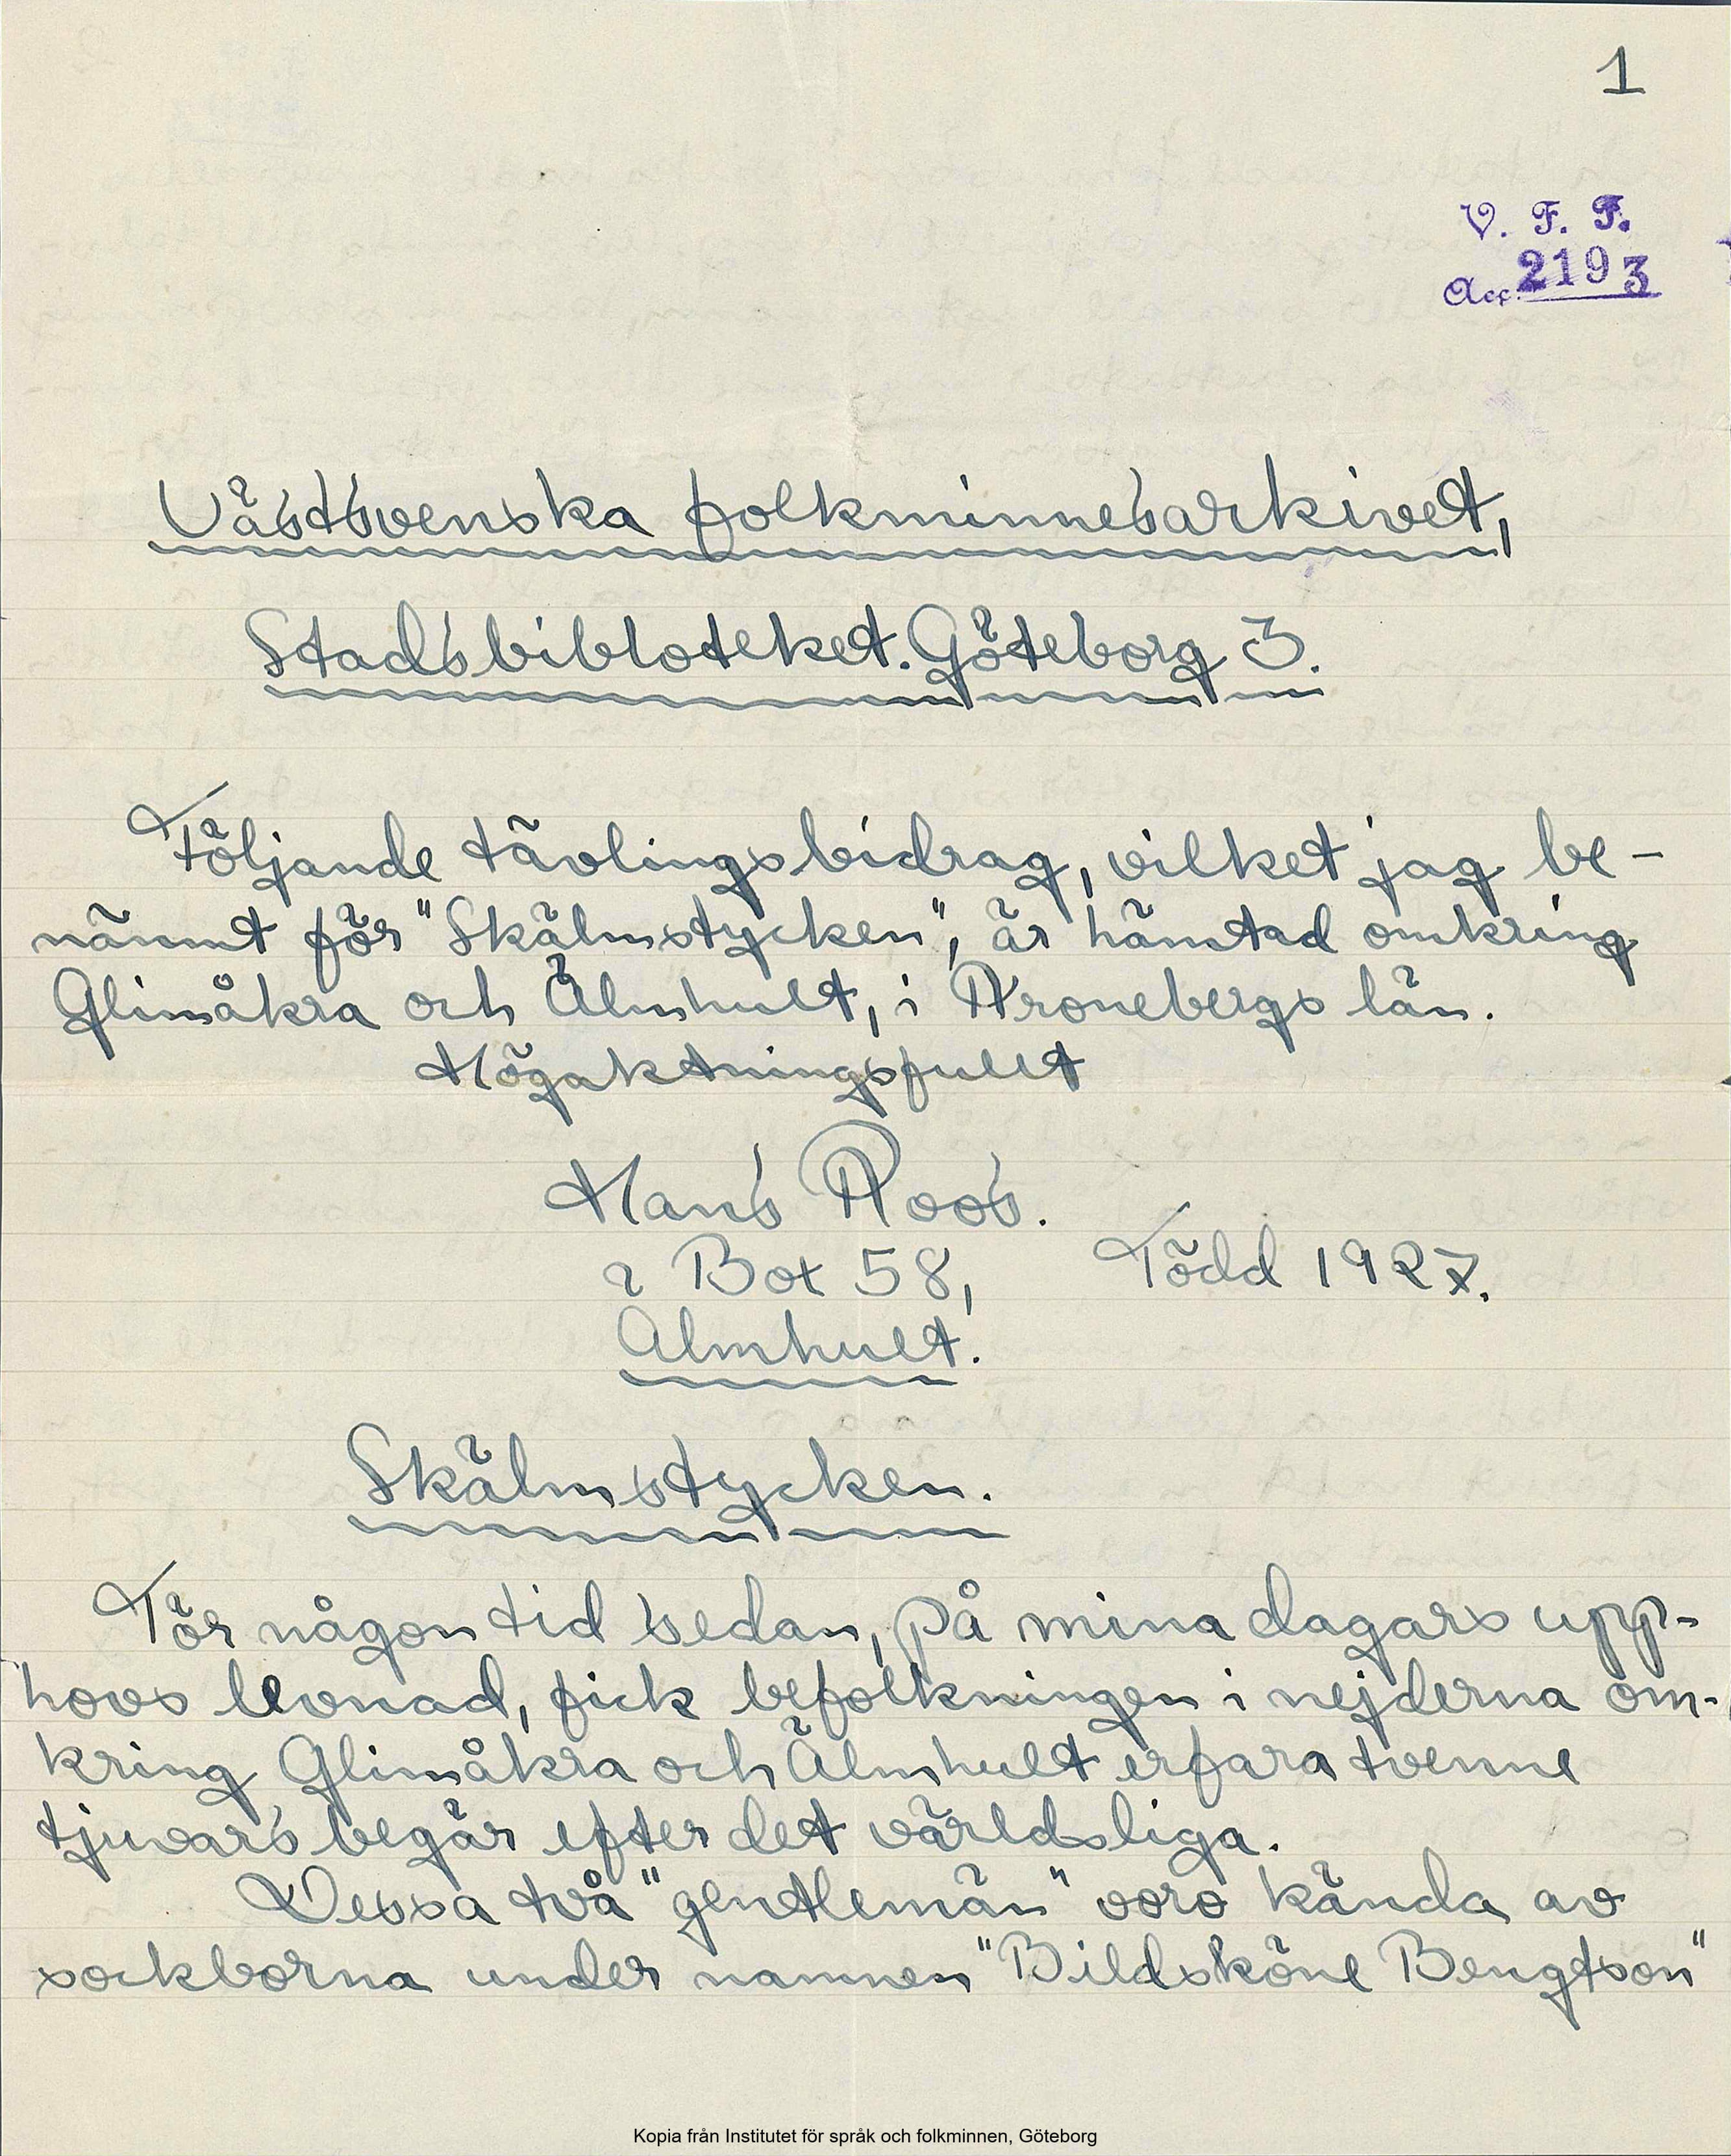 1
V. F. F.
Acc. 2193
Västsvenska folkminnesarkivet,
Stadsbibloteket. Göteborg 3.
Följande tävlingsbidrag, vilket jag be-
nämnt för "Skälmstycken", är hämtad omkring
Glimåkra och Älmhult, i Kronebergs län.
Högaktningsfullt
Hans Roos.
Box 58, Född 1927.
Älmhult.
Skälmstycken.
För någon tid sedan, på mina dagars upp-
hovs levnad, fick befolkningen i nejderna om-
kring Glimåkra och Älmhult erfara tvenne
tjuvars begär efter det världsliga.
Dessa två "gentlemän" voro kända av
sockborna under namnen "Bildsköne Bengtson"
Kopia från Institutet för språk och folkminnen, Göteborg